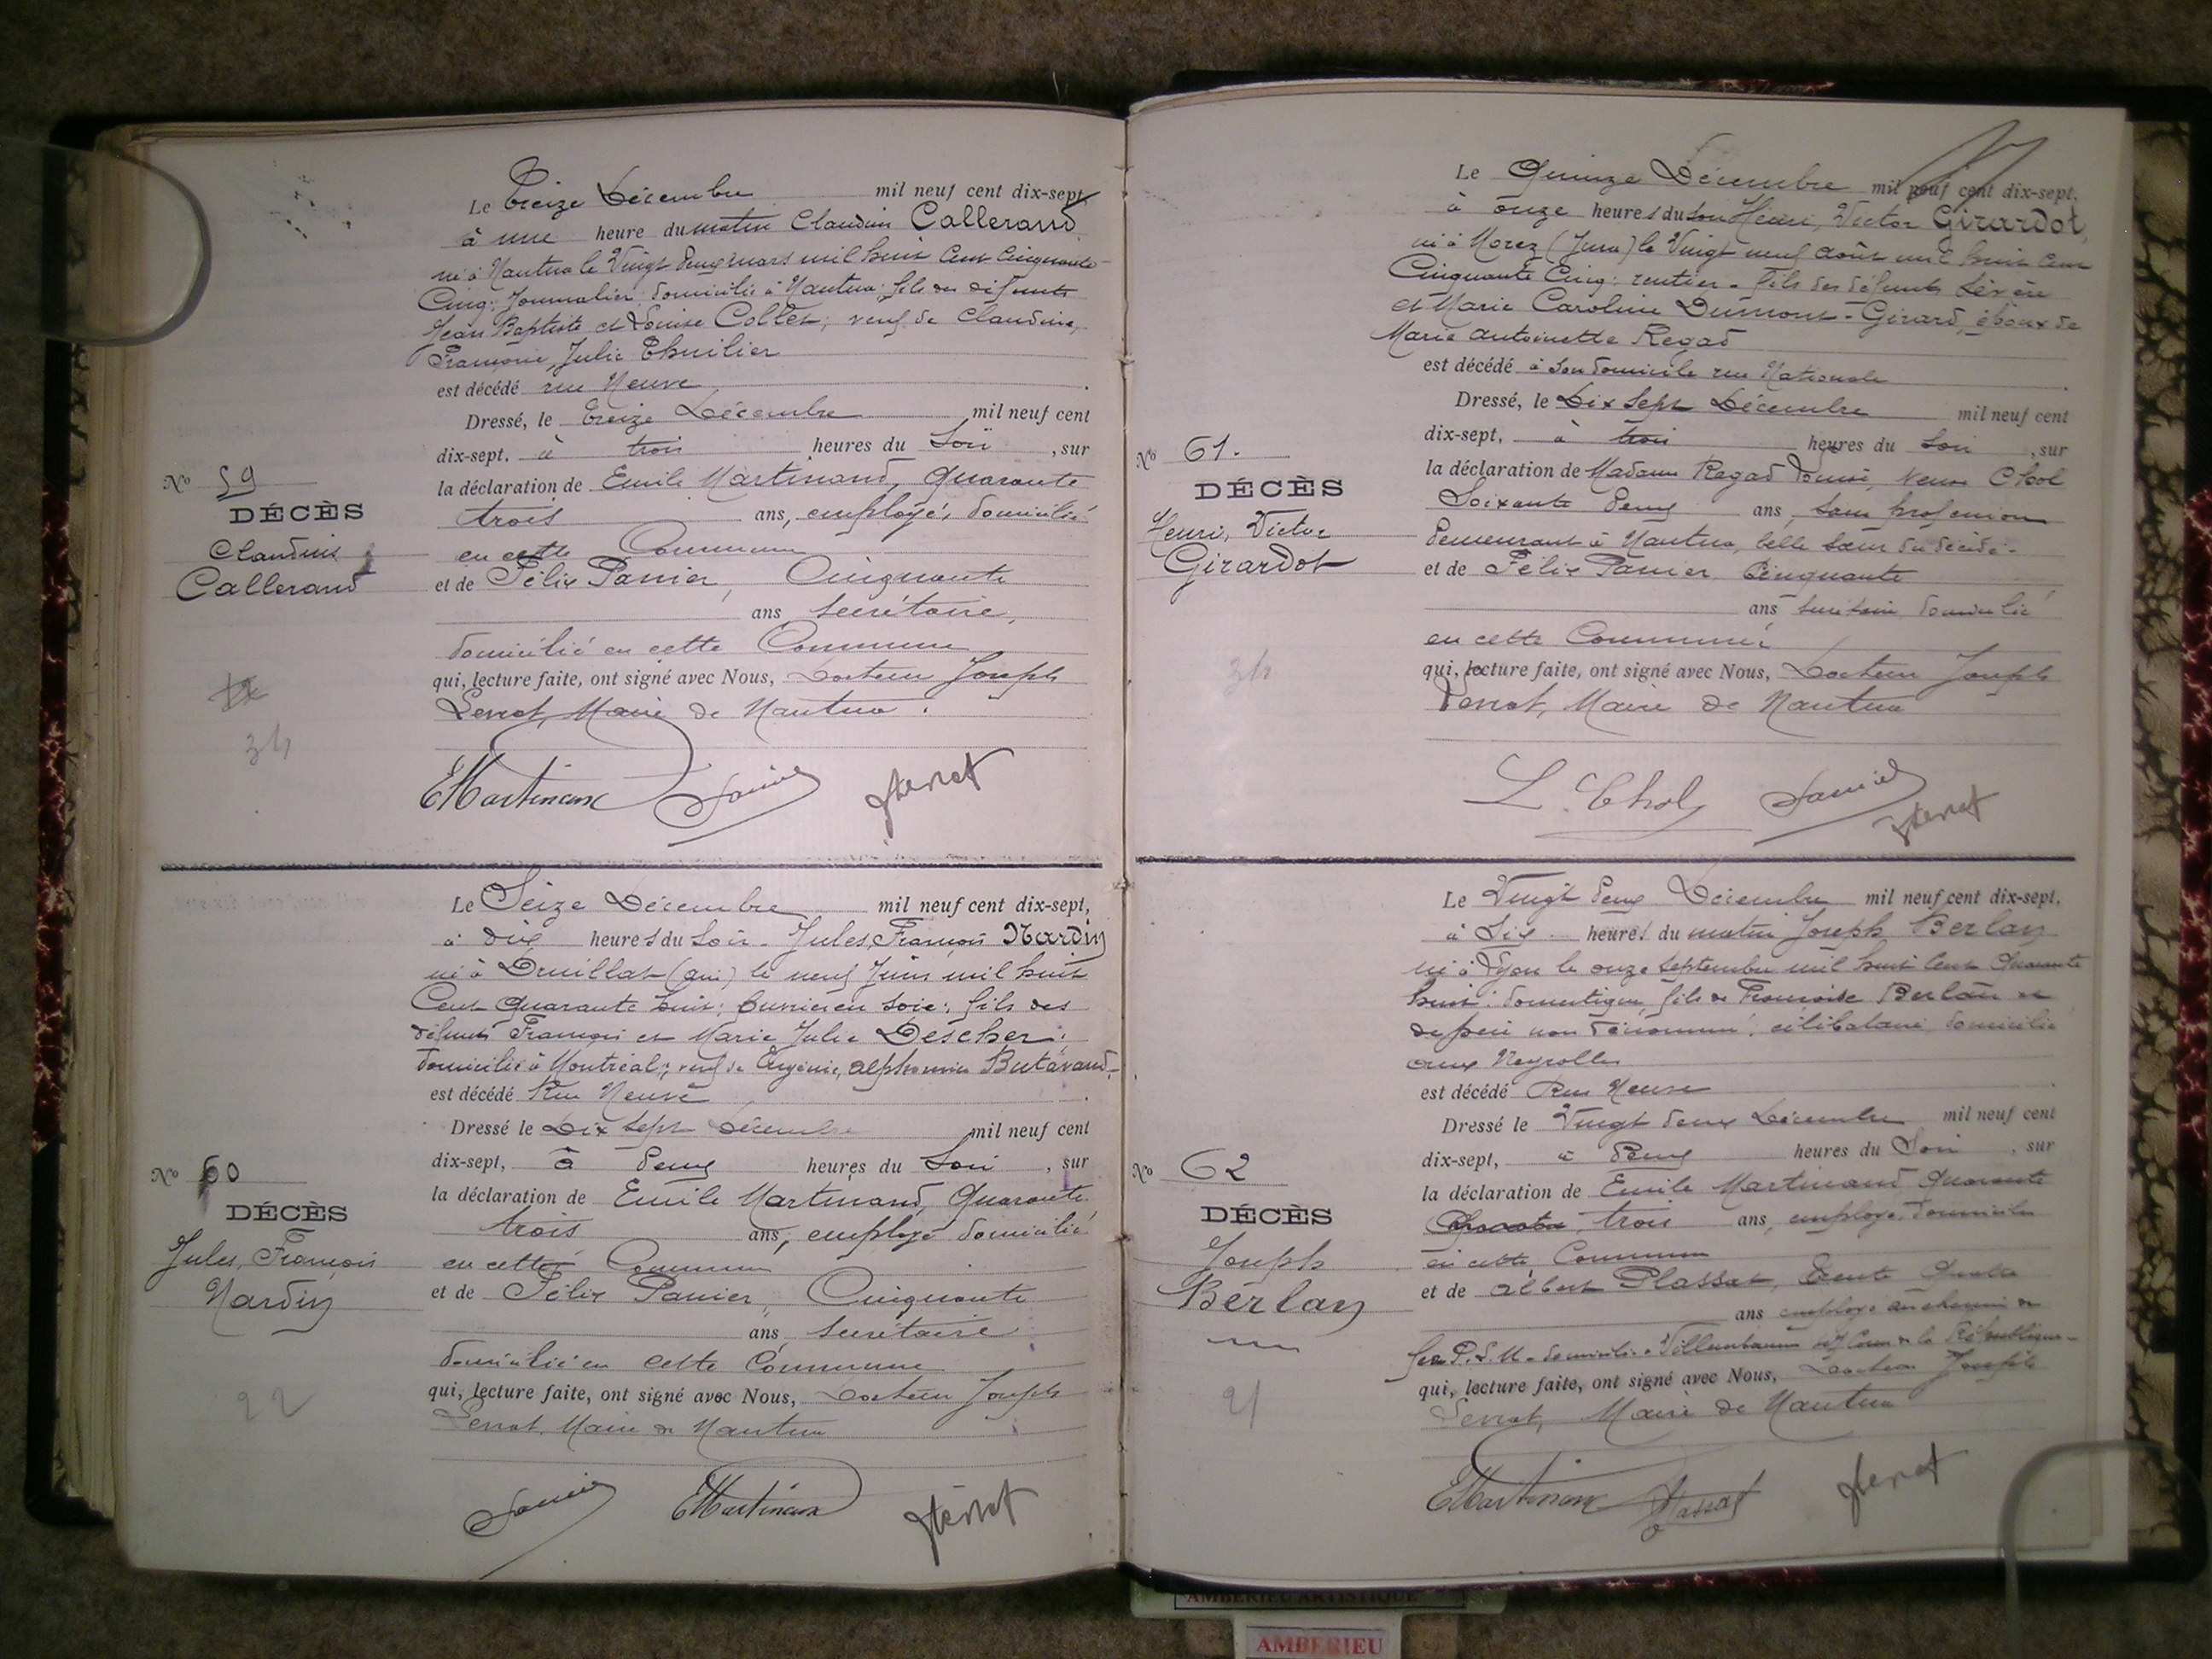 Le Treize Décembre mil neuf cent dix-sept
à une heure du matin Claudius Callerand
né à Nantua le Vingt deux mars mil huit Cent Cinquante
Cinq; Journalier; domicilié à Nantua; fils des défunts
Jean Baptiste et Louise Collet; veuf de Claudine,
Françoise, Julie Thuilier
est décédé rue Neuve
Dressé, le Treize Décembre mil neuf cent
dix-sept. à trois heures du Soir, sur
la déclaration de Emile Martinand, Quarante
trois ans, employé, domicilié
en cette Commune
et de Félix Panier, Cinquante
ans Secrétaire,
domicilié en cette Commune
qui, lecture faite, ont signé avec Nous, Docteur Joseph
Maire de Nantua.
No 59
DÉCÈS
Claudius
Callerand
3h
EMartinand Panier
Le Seize Décembre mil neuf cent dix-sept,
à dix heures du Soir. Jules, François Nardin
né à Druillat (Ain) le neuf Juin mil huit
Cent Quarante huit; Ouvrier en Soie; fils des
défunts François et Marie Julie Descher;
domicilié à Montréal; veuf de Eugénie, Alphonsine Butavand.
est décédé Rue Neuve
Dressé le Dix Sept Décembre mil neuf cent
dix-sept, à Deux heures du Soir, sur
la déclaration de Emile Martinand, Quarante
trois ans, employé domicilié
en cette Commune
et de Félix Panier, Cinquante
ans, Secrétaire
domicilié en cette Commune
qui, lecture faite, ont signé avec Nous, Docteur Joseph
Maire de Nantua
No 60
DÉCÈS
Jules, François
Nardin
22
Panier EMartinand
Le Quinze Décembre mil neuf cent dix-sept.
à onze heures du Soir Henri, Victor Girardot,
né à Morez (Jura) le Vingt neuf Août mil huit Cent
Cinquante Cinq; rentier. Fils des défunts Sévère
et Marie Caroline Dumont-Girard, époux de
Marie Antoinette Regad
est décédé à Son domicile rue Nationale
Dressé, le Dix Sept Décembre mil neuf cent
dix-sept, à trois heures du Soir, sur
la déclaration de Madame Regad Louise, Veuve Chol
Soixante Deux ans, Sans profession
demeurant à Nantua, belle Sœur du décédé.
et de Félix Panier Cinquante
ans Secrétaire domicilié
en cette Commune
qui, lecture faite, ont signé avec Nous, Docteur Joseph
Maire de Nantua
No 61.
DÉCÈS
Henri, Victor
Girardot
3h
L. Chol Panier
Le Vingt deux Décembre mil neuf cent dix-sept,
à Six heures du matin Joseph Berlan
né à Lyon le onze Septembre mil huit Cent Quarante
huit. domestique, fils de Françoise Berlan et
de père non dénommé; célibataire, domicilié
aux Neyrolles
est décédé Rue Neuve
Dressé le Vingt deux Décembre mil neuf cent
dix-sept, à Deux heures du Soir, sur
la déclaration de Emile Martinand Quarante
trois ans, employé, domicilié
en cette Commune
et de Albert Plassat, Trente Quatre
ans employé au chemin de
fer P.L.M. domicilié à Villeurbanne Cours de la République.
qui, lecture faite, ont signé avec Nous, Docteur Joseph
Maire de Nantua
No 62
DÉCÈS
Joseph
Berlan
21
EMartinand Plassat
AMBERIEU ARTISTIQUE
AMBERIEU